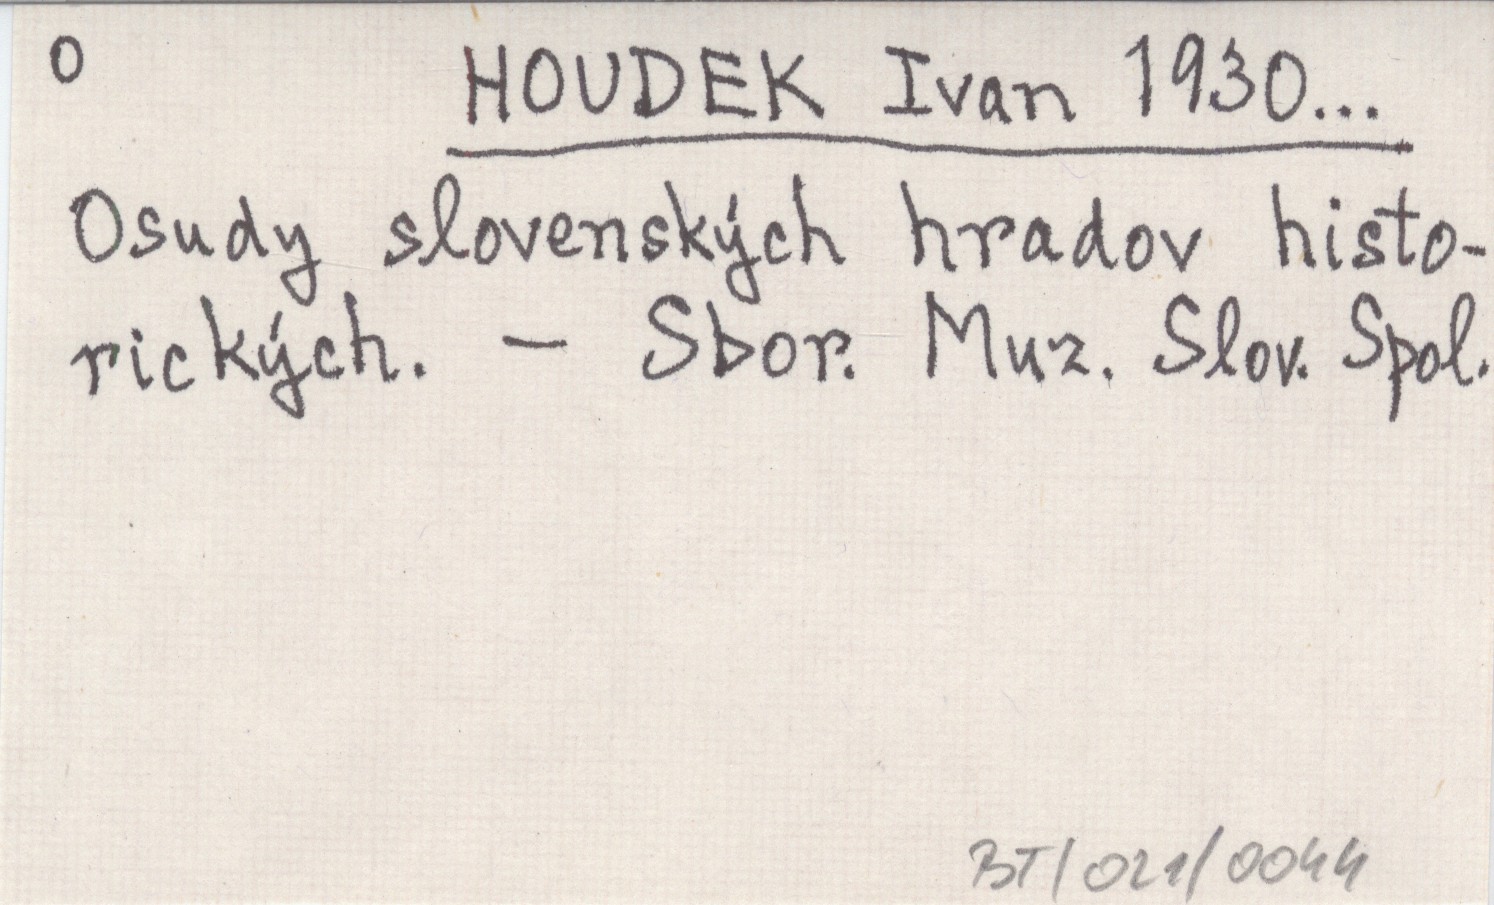 O HOUDEK Ivan 1930...
Osudy slovenských hradov histo-
rických. — Sbor. Muz. Slov. Spol.
BT/021/0044